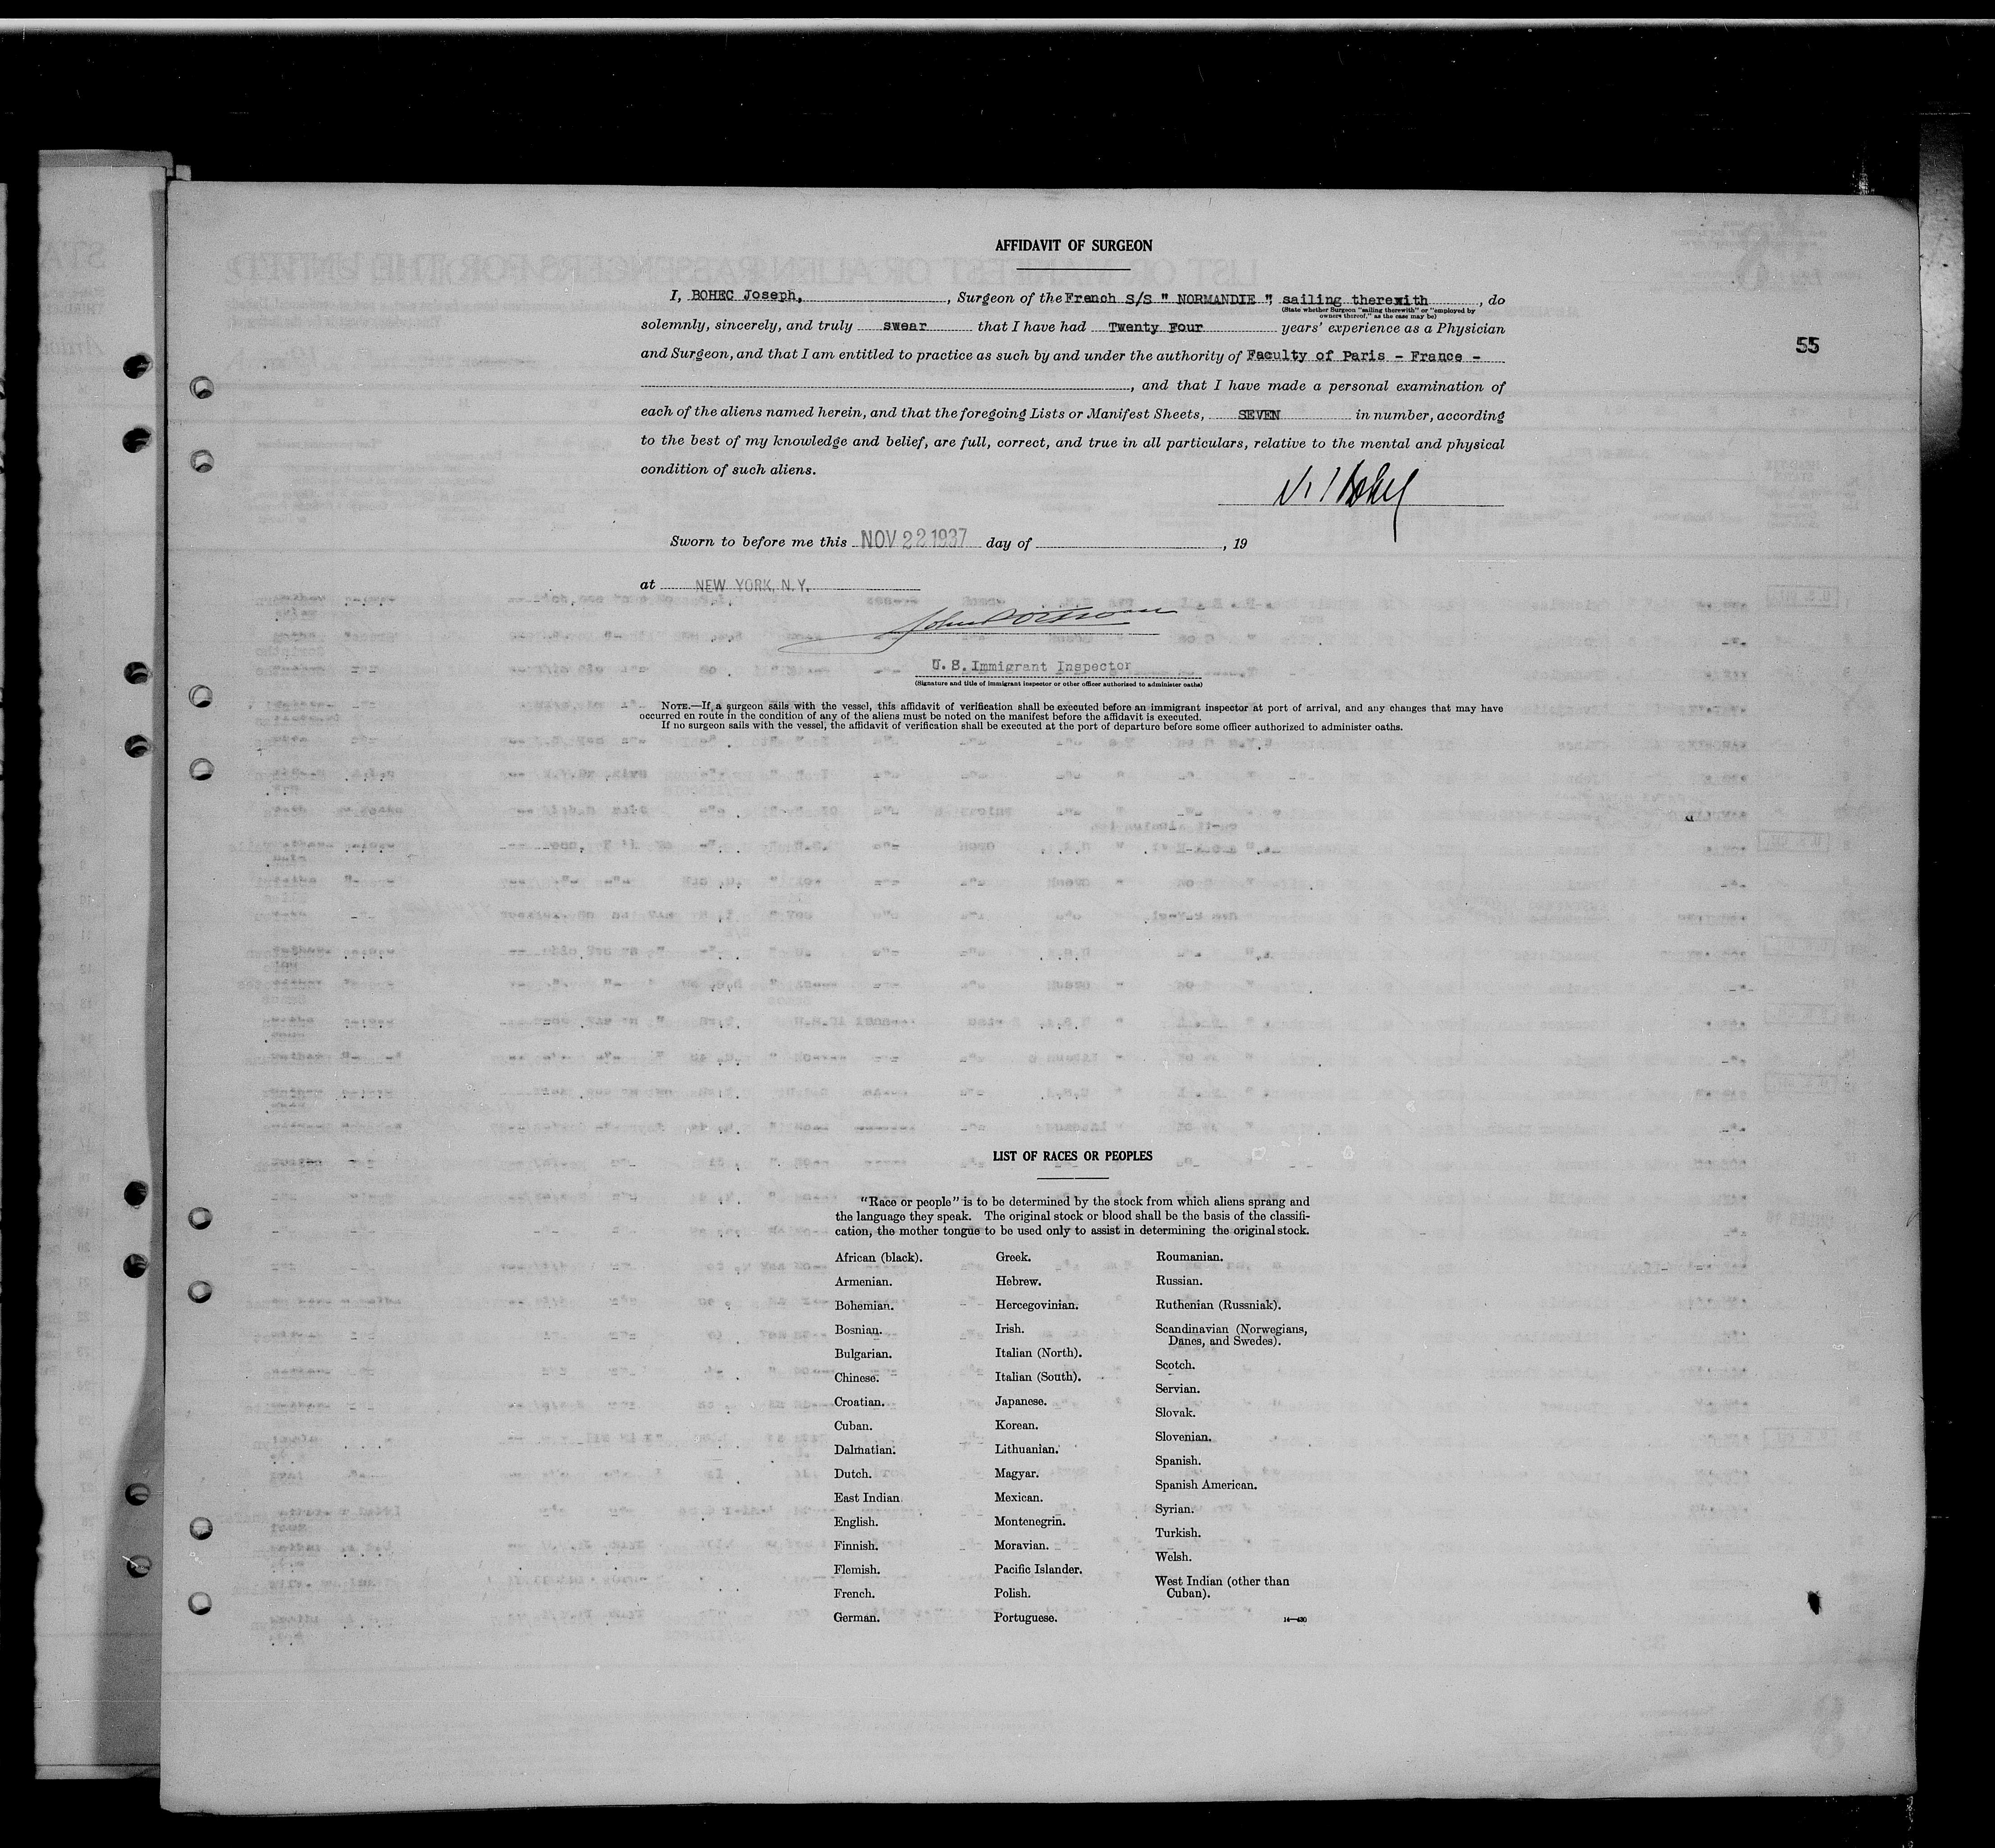 AFFIDAVIT OF SURGEON
I, BOHEC Joseph, , Surgeon of the French S/S " NORMANDIE ", sailing therewith , do
(State whether Surgeon "sailing therewith" or "employed by
owners thereof," as the case may be)
solemnly, sincerely, and truly swear that I have had Twenty Four years' experience as a Physician
55
and Surgeon, and that I am entitled to practice as such by and under the authority of Faculty of Paris - France -
, and that I have made a personal examination of
each of the aliens named herein, and that the foregoing Lists or Manifest Sheets, SEVEN in number, according
to the best of my knowledge and belief, are full, correct, and true in all particulars, relative to the mental and physical
condition of such aliens.
Sworn to before me this NOV 22 1937 day of , 19
at NEW YORK, N.Y.
U. S. Immigrant Inspector
(Signature and title of immigrant inspector or other officer authorized to administer oaths)
NOTE.—If a surgeon sails with the vessel, this affidavit of verification shall be executed before an immigrant inspector at port of arrival, and any changes that may have
occurred en route in the condition of any of the aliens must be noted on the manifest before the affidavit is executed.
If no surgeon sails with the vessel, the affidavit of verification shall be executed at the port of departure before some officer authorized to administer oaths.
LIST OF RACES OR PEOPLES
"Race or people" is to be determined by the stock from which aliens sprang and
the language they speak. The original stock or blood shall be the basis of the classifi-
cation, the mother tongue to be used only to assist in determining the original stock.
African (black).
Armenian.
Bohemian.
Bosnian.
Bulgarian.
Chinese.
Croatian.
Cuban.
Dalmatian.
Dutch.
East Indian.
English.
Finnish.
Flemish.
French.
German.
Greek.
Hebrew.
Hercegovinian.
Irish.
Italian (North).
Italian (South).
Japanese.
Korean.
Lithuanian.
Magyar.
Mexican.
Montenegrin.
Moravian.
Pacific Islander.
Polish.
Portuguese.
Roumanian.
Russian.
Ruthenian (Russniak).
Scandinavian (Norwegians,
Danes, and Swedes).
Scotch.
Servian.
Slovak.
Slovenian.
Spanish.
Spanish American.
Syrian.
Turkish.
Welsh.
West Indian (other than
Cuban).
14—430